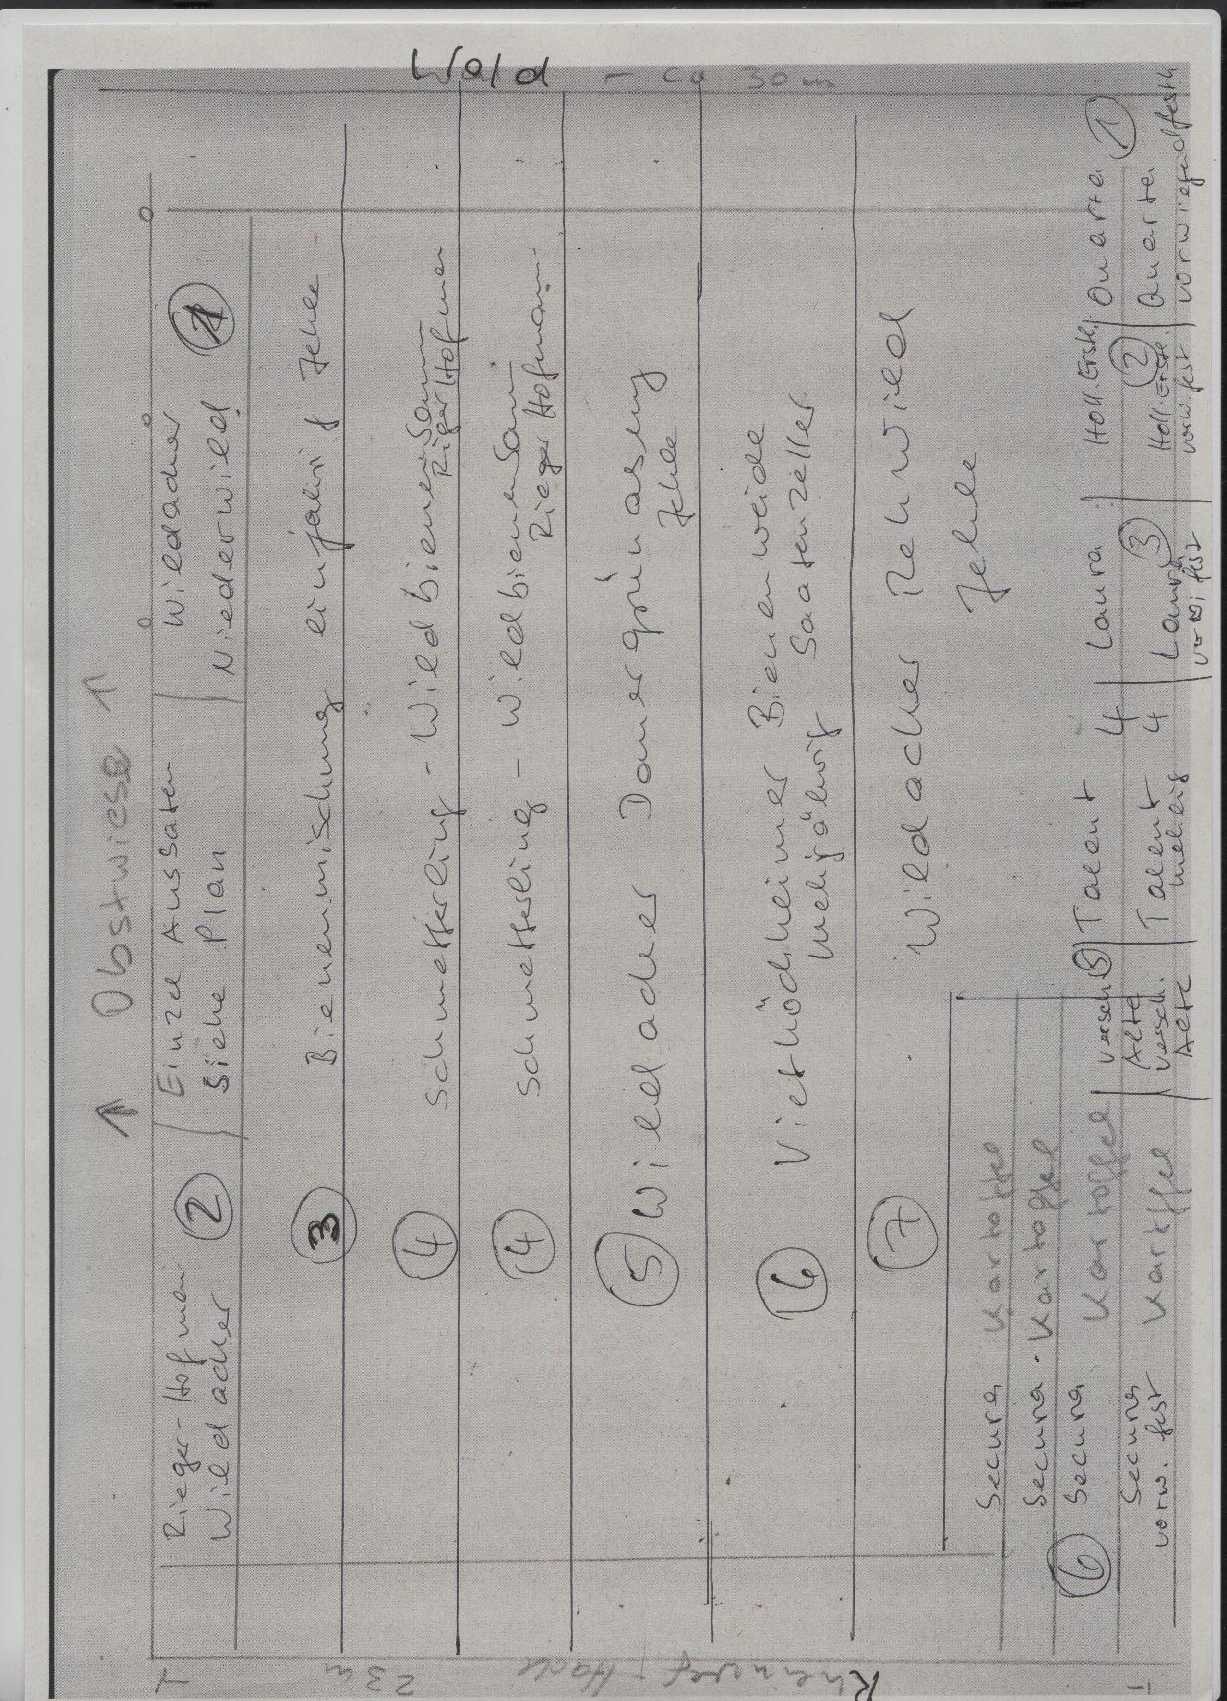 Wald - ca 30 m
↑ Obstwiese ↑
Rieger-Hofman
Wildacker
2
Einzel Aussaten
Siehe Plan
Wildacker
Niederwild
1
3 Bienenmischung einjährig Jehle
4 Schmetterling - Wildbienen Saum
Riger Hofmen
4 Schmetterling - Wildbienen Sam
Rieger Hofmann
5 Wildacker Dauergrünasung
Jehle
6 Vietshöchheimer Bienenweide
mehrjährig Saatenzeller
7 Wildacker Rehwild
Jehle
Secura Kartoffel
Secura Kartoffel
6 Secura Kartoffel
versch. 5
Alte
Talent 4
Laura
Holl. Erstl.
Quarta 1
Secura Kartffel
vorw. fest
versch.
Alte
Talent 4
mehlig
Laura 3
vorwi fest
Holl. Erstl. 2
vorw. fest
Quarta
vorwiegend festk
T 23m
T